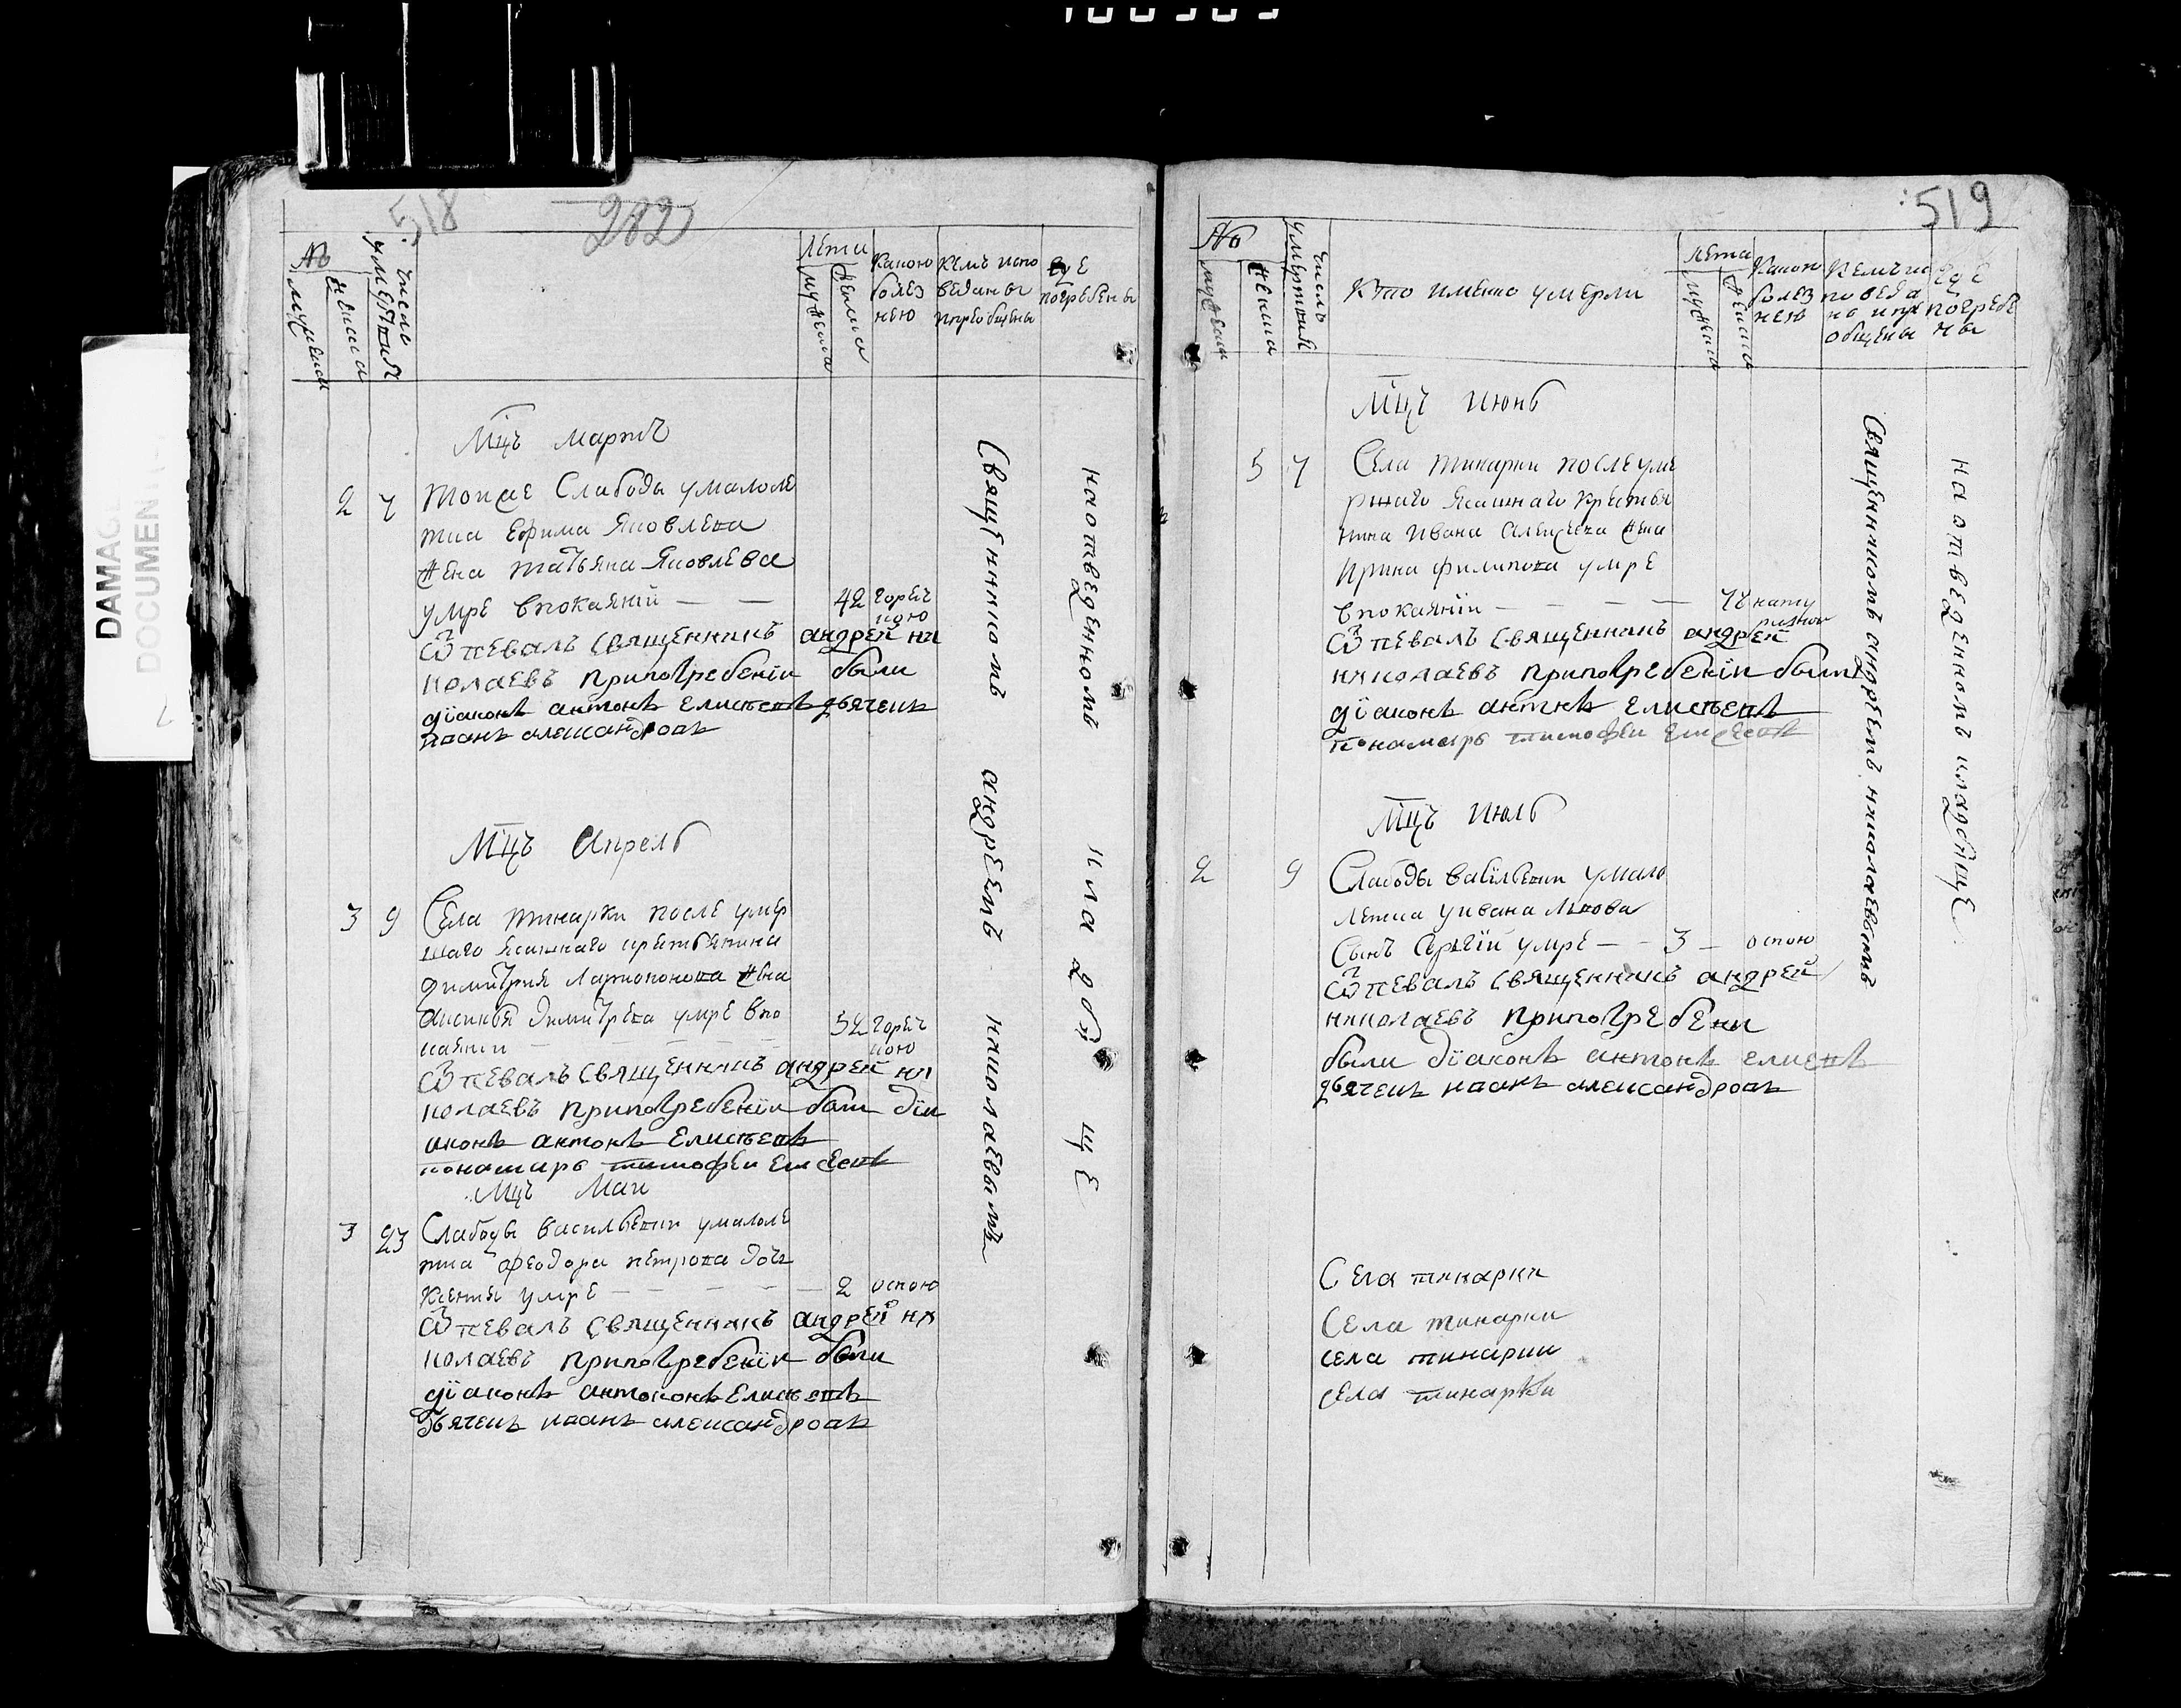 518
202
DAMAGE
DOCUMENT
№
мужеска
женска
число умертвия
лета
мужеска
женска
какою болез нею
кемъ испо веданы и приобщены
где погребены
Мцъ мартъ
2 7 тоиже Слабоды умалоле
тка Ефима Яковлева
жена татьяна Яковлева
умре впокаянïи — — 42 гореч кою
ѿпевалъ священникъ андрей ни
колаевъ припогребенïи были
дïаконъ антонъ Елисеевъ дьячекъ
иванъ александровъ
Мцъ Апрель
3 9 Села тинарки после умер
шаго Ясашнаго крестьянина
димитрия Ларионова жена
аксинья димитрева умре впо
каянïи — — — — 52 гореч кою
ѿпевалъ священникъ андрей ни
колаевъ припогребенïи были дïи
аконъ антонъ Елисеевъ
понамарь тимофеи Елисеевъ
Мцъ Маи
3 23 Слабоды васильевки умалоле
тка феодора петрова дочь
Ксенья умре — — — — 2 оспою
ѿпевалъ священникъ андрей ни
колаевъ припогребенïи были
дïаконъ антоконъ Елисеевъ
дьячекъ иванъ александровъ
Священникомъ андреемъ николаевымъ
наотведенномъ кладбище
519
№
мужеска
женска
число умертвия
Кто имено умерли
лета
мужеска
женска
какою болез нею
кемъ ис поведа ны и при общены
где погребе ны
Мцъ Июнь
5 7 Села тинарки после уме
ршаго Ясашнаго крестья
нина Ивана Алексеева жена
Ирина филипова умре
впокаянïи — — — — нату ралною
ѿпевалъ священникъ андрей
николаевъ припогребенïи были
дïаконъ антнъ Елисеевъ
понамарь тимофеи Елисеевъ
Мцъ Июль
2 9 Слабоды васильевки умало
летка уивана львова
Сынъ Сергïй умре — — 3 — оспою
ѿпевалъ священникъ андрей
николаевъ припогребени
были дïаконъ антонъ елисевъ
дьячекъ иванъ александровъ
Священникомъ андреемъ николаевымъ
на отведенномъ кладбище
Села тинарки
Села тинарки
села тинарки
села тинарки